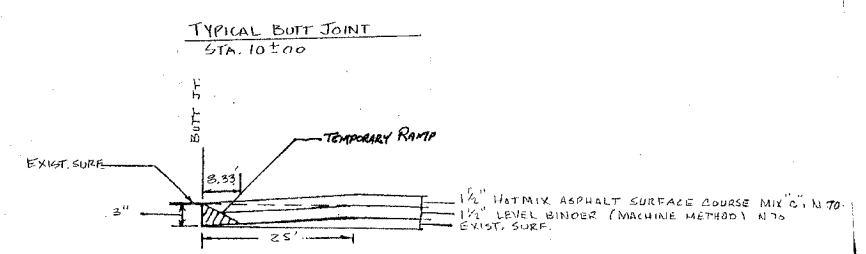 TYPICAL BUTT JOINT
STA. 10±00
BUTT JT.
TEMPORARY RAMP
EXIST. SURF.
8.33'
3"
25'
1½" HOTMIX ASPHALT SURFACE COURSE MIX "C", N 70.
1½" LEVEL BINDER (MACHINE METHOD) N 70
EXIST. SURF.